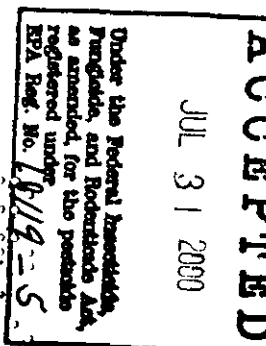 ACCEPTED
JUL 31 2000
Under the Federal Insecticide,
Fungicide, and Rodenticide Act,
as amended, for the pesticide
registered under
EPA Reg. No.